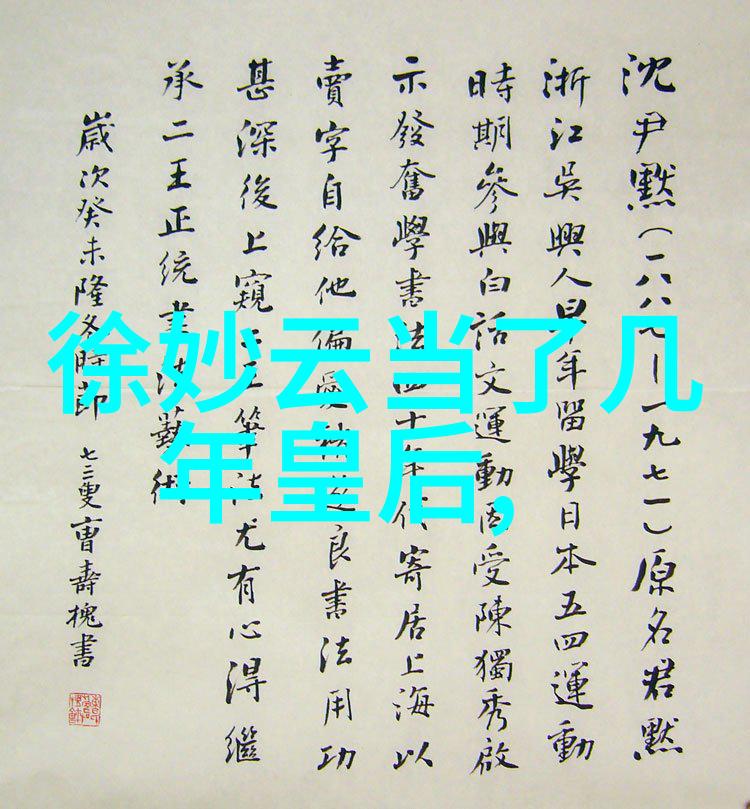 徐妙云当了几
年皇后,
沈尹默(一八八七—一九七一)原名君默
浙江吳興人早年留學日本五四運動
時期參與白話文運動因受陳獨秀啟
示發奮學書法四十年代寄居上海以
賣字自給他偏愛褚遂良書法用功
甚深後上窺二王筆法尤有心得繼
承二王正統書法藝術
歲次癸未隆冬時節 七三叟曹壽槐書